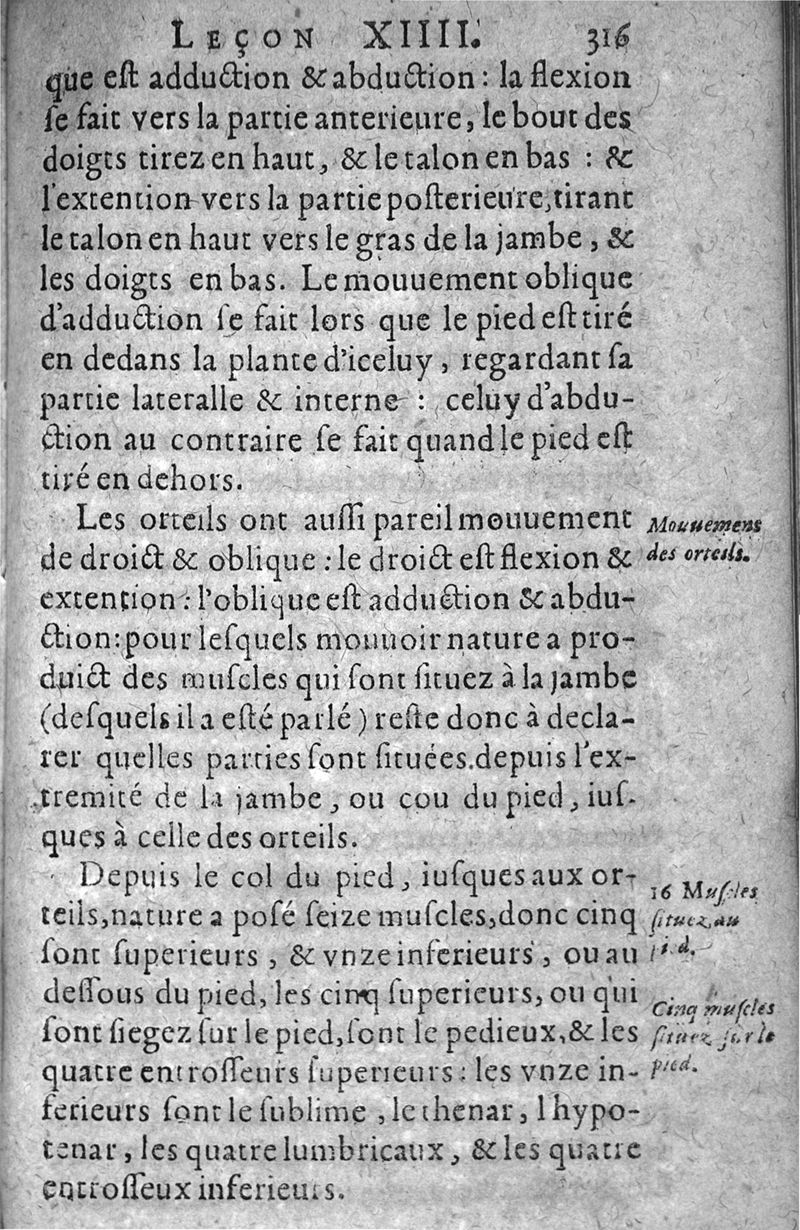 LEÇON XIIII. 316
que eſt adduction & abduction : la flexion
ſe fait vers la partie anterieure, le bout des
doigts tirez en haut, & le talon en bas : &
l'extention vers la partie poſterieure, tirant
le talon en haut vers le gras de la jambe, &
les doigts en bas. Le mouuement oblique
d'adduction ſe fait lors que le pied eſt tiré
en dedans la plante d'iceluy, regardant ſa
partie lateralle & interne : celuy d'abdu-
ction au contraire ſe fait quand le pied eſt
tiré en dehors.
Les orteils ont auſſi pareil mouuement
de droict & oblique : le droict eſt flexion &
extention : l'oblique eſt adduction & abdu-
ction : pour leſquels mouuoir nature a pro-
duict des muſcles qui ſont ſituez à la jambe
(deſquels il a eſté parlé) reſte donc à decla-
rer quelles parties ſont ſituées depuis l'ex-
tremité de la jambe, ou cou du pied, iuſ-
ques à celle des orteils.
Mouuemens
des orteils.
Depuis le col du pied, iuſques aux or-
teils, nature a poſé ſeize muſcles, donc cinq
ſont ſuperieurs, & vnze inferieurs, ou au
deſſous du pied, les cinq ſuperieurs, ou qui
ſont ſiegez ſur le pied, ſont le pedieux, & les
quatre entroſſeurs ſuperieurs : les vnze in-
ferieurs ſont le ſublime, le thenar, l hypo-
tenar, les quatre lumbricaux, & les quatre
entroſſeux inferieurs.
16 Muſcles
ſituez au
pied.
Cinq muſcles
ſituez ſur le
pied.